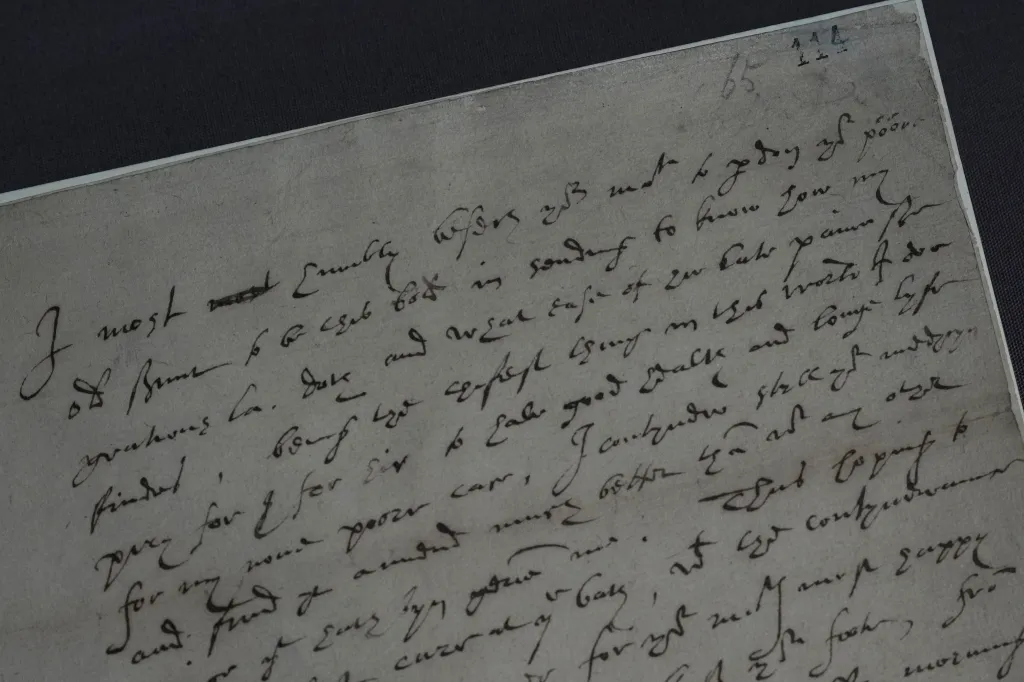 65 114
I most humbly besech yor mate to pdon yor pöör
old srvant to be thus bold in sending to know how my
gratious la. doth and what ease of her late paine she
findes, being the chefest thing in this world I doe
prey for & for hir to have good health and longe lyfe
for my none poore case, I contynew still yor medcyn
and find yt amend much better than wth any other
hath byn geven me. Thus hoping to
cure at ye bath, wth the contynewance
for yor maty most happy
yor foote, fro
morning